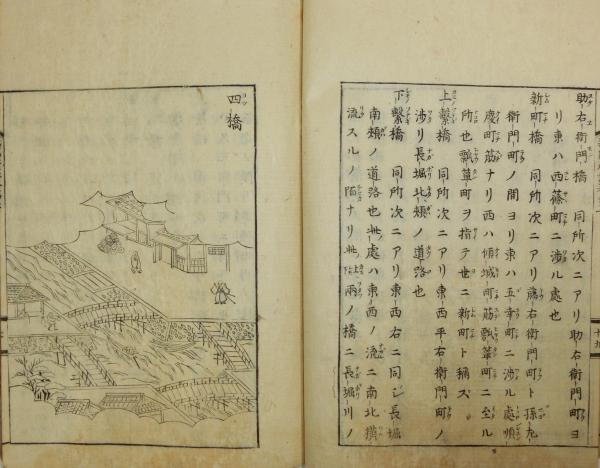 助右衛門橋 同所次ニアリ助右衛門町ヨ
リ東ハ西篠町ニ渉ル處也
新町橋 同所次ニアリ藤右衛門町ト孫左
衛門町ノ間ヨリ東ハ五幸町ニ渉ル處順
慶町筋ナリ西ハ傾城町筋瓢箪町ニ至ル
所也瓢箪町ヲ指テ世ニ新町ト稱ス
上繋橋 同所次ニアリ東西平右衛門町ノ
渉リ長堀北頬ノ道路也
下繋橋 同所次ニアリ東西右ニ同シ長堀
南頬ノ道路也此處ハ東西ノ流ニ南北横
流スルノ陌ナリ此陌兩ノ橋ニ長堀川ノ
四橋